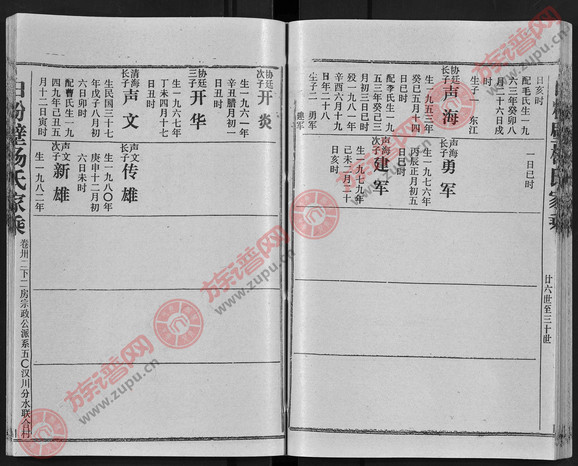 日亥时
配毛氏生一九
六三年癸卯八
月二十六日戌
时
生子一 东江
协廷长子 声海
生一九五三年
癸巳五月十四
日巳时
配李氏生一九
五三年癸巳六
月初三日巳时
殁一九八一年
辛酉六月十九
日年二十八
生子二 勇军
建军
一日巳时
声海长子 勇军
生一九七六年
丙辰正月初五
日巳时
声海次子 建军
生一九七九年
己未二月二十
日亥时
廿六世至三十世
协廷次子 开炎
生一九六一年
辛丑腊月初一
日丑时
协廷三子 开华
生一九六七年
丁未四月十七
日丑时
清海长子 声文
生民国三十七
年戊子八月初
六日卯时
配曹氏生一九
四九年己丑五
月十二日寅时
声文长子 传雄
生一九八〇年
庚申十二月初
六日未时
声文次子 新雄
生一九八二年
白粉壁杨氏家乘
卷卅二下二房宗政公派系五〇汉川分水联合村
族谱网
www.zupu.cn